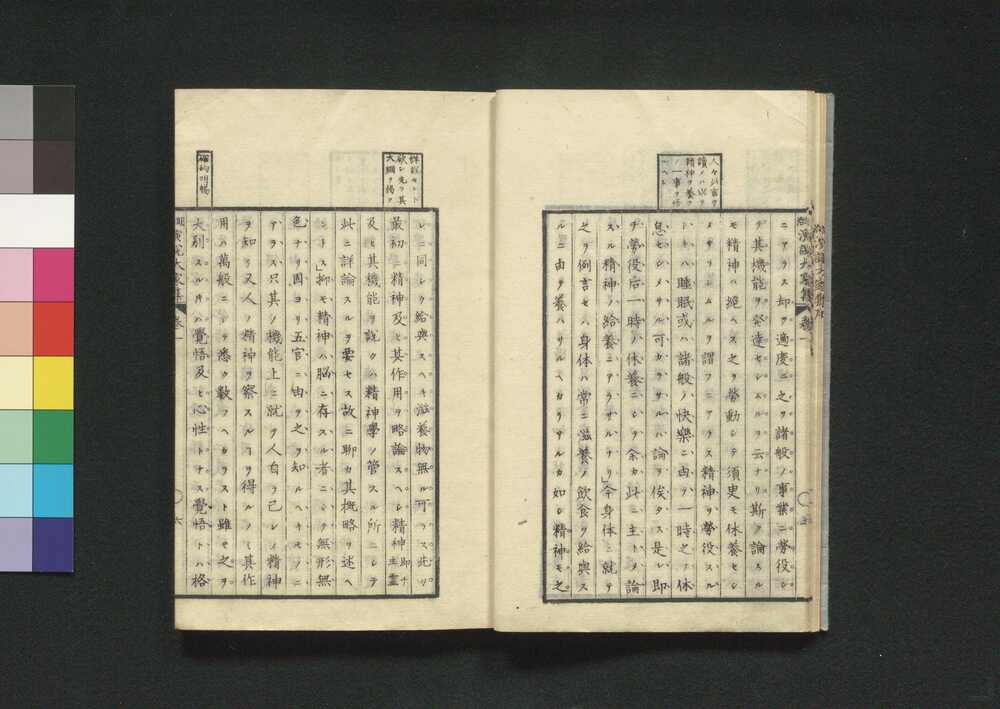 人々此言ヲ
讀メハ以テ
精神ヲ養フ
ノ一事ヲ悟
ヘシ
ニアラス却テ適度ニ之ヲ諸般ノ事業ニ勞役シ
テ其機能ヲ發達セシムルヲ云ナリ斯ク論スル
モ精神ハ絶ヘス之ヲ勞動シテ須臾モ休養セシ
メサラシムルヲ謂フニアラス精神ノ勞役スル
トキハ睡眠或ハ諸般ノ快樂ニ由テ一時之ヲ休
息セシメサル可カラサルハ論ヲ俟タス是レ即
チ勞役后一時ノ休養ニシテ余カ此ニ主トメ論
スル精神ノ給養ニアラサルナリ」今身體ニ就テ
之ヲ例言セハ身体ハ常ニ滋養ノ飲食ヲ給與ス
ルニ由テ養ハサルヘカラサルカ如シ精神モ之
演説大家集 卷一
五
詳説セント
欲シ先ツ其
大綱ヲ掲ク
レニ同シク給與スヘキ滋養物無ル可ラス此ニ
最初ニ精神及ヒ其作用ヲ略論スヘシ精神即チ主靈
及ヒ其機能ヲ説クハ精神學ノ管スル所ニシテ
此ニ詳論スルヲ要セス故ニ聊カ其概略ヲ述ヘ
ントス」抑モ精神ハ脳ニ存スル者ニシテ無形無
色ナリ固ヨリ五官ニ由テ之ヲ知ルヘキモノニ
アラス只其ノ機能上ニ就テ人自ラ己レノ精神
ヲ知リ又人ノ精神ヲ察スルヿヲ得ルノミ其作
用ハ萬般ニシテ悉ク數フヘカラスト雖モ之ヲ
大別スルトキハ覺悟及ヒ心性トナス覺悟トハ格
演説大家集 卷一
六